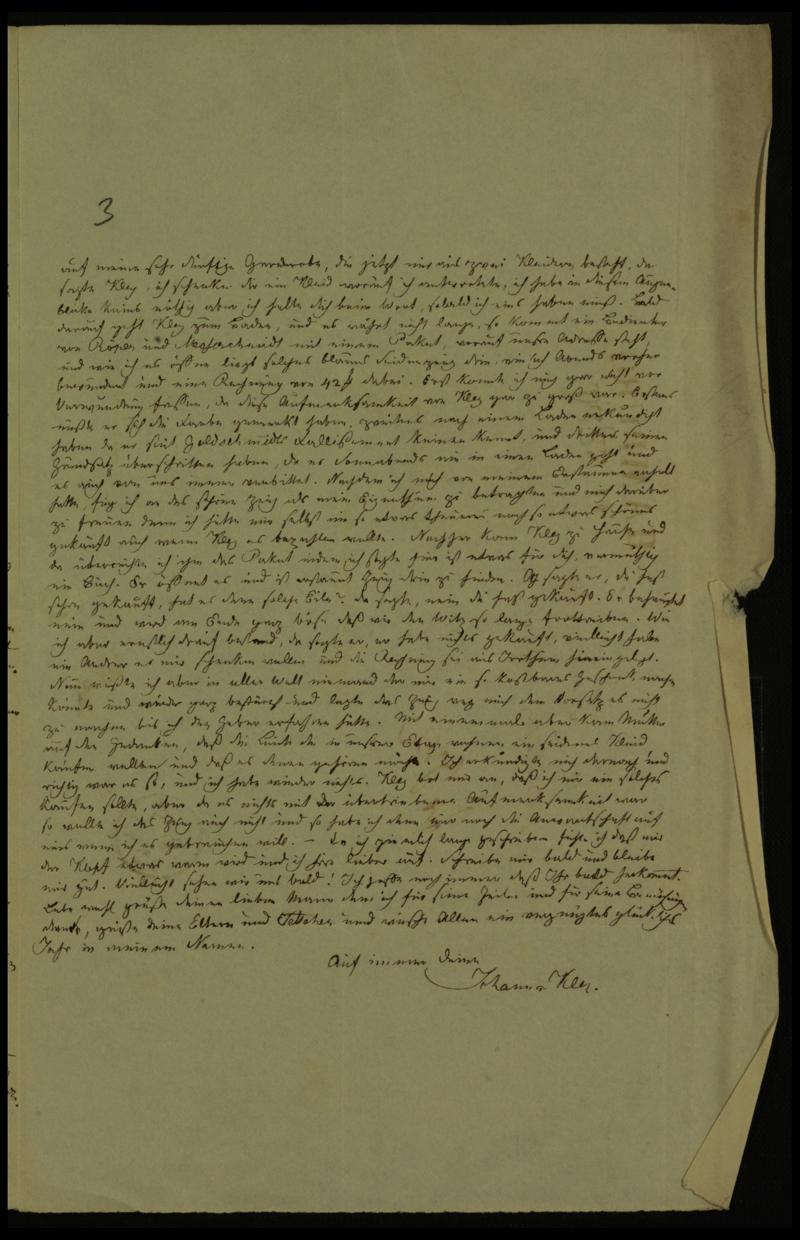 3
auf meine sehr dürftige Garderobe, die jetzt nur aus zwei Kleidern besteht, da
sagte Kley, ich schenke dir ein Kleid worauf ich antwortete, ich habe in diesem Augen-
blicke keins nöthig aber ich halte dich beim Wort, sobald ich eins haben muß. Bald
darauf geht Kley zum Laden, und es währt nicht lange, so kommt ein Bedienter
von und mit einem Paket, worauf unsre Adresse steht,
und wie ich es öffne liegt solches blaues Seidenzeug drin, wie ich Abends vorher
bewundert und eine Rechnung von 42 dabei. Erst konnte ich mich gar nicht vor
Verwunderung fassen, da diese Aufmerksamkeit von Kley gar zu groß war. Erstens
mußte er sich die Farbe gemerkt haben, zweitens nach einem Laden erkundigt
haben da er seit Goldschmidts Fallissement keinen kennt, und drittens seinen
Grundsatz überschritten haben, da er Sonnabends nie in einen Laden geht und
es auch von uns immer verbittet. Nachdem ich mich von meinem Erstaunen erholt
hatte, fing ich an das schöne Zeug als mein Eigenthum zu betrachten und mich darüber
zu freuen denn ich hätte mir selbst nie so etwas theueres noch so etwas schönes
gekauft auch wenn Kley es bezahlen wollte. Nachher kam Kley zu Hause und
da überreichte ich ihm das Paket indem ich sagte hier ist etwas für dich, vermuthlich
ein Buch. Er öffnet es und ist erstaunt Zeug drin zu finden. O sagte er, du hast
schon gekauft, hat es denn solche Eile? da sagte, nein du hast gekauft. Er behauptet
nein und wird am Ende ganz böse daß wir den Witz so lange forttreiben. Wie
ich aber ernstlich drauf bestand, da sagte er, er habe nichts gekauft, vielleicht habe
ein Andrer es mir schenken wollen und die Rechnung sei aus Irrthum hineingelegt.
Nun wußte ich aber in aller Welt niemand der mir ein so kostbares Geschenk machen
könnte und wurde ganz bestürzt und legte das Zeug weg mit dem Vorsatz es nicht
zu machen bis ich den Geber erfahren hätte. Mit einemmale aber kam Mutter
auf den Gedanken, daß die Leute die in unserer Etage wohnen ein seidenes Kleid
kaufen wollten und daß es denen gehören möchte. Ich erkundigte mich darnach und
richtig war es so, und ich habe wieder nichts. Kley bot mir an, daß ich mir ein solches
kaufen sollte, aber da es nichts mit der übertriebenen Aufmerksamkeit war
so wollte ich das Zeug auch nicht und so habe ich denn nur noch die Anwartschaft auf
eins wenn ich es gebrauchen will. – Da ich ziemlich lange geschrieben fühle ich daß mir
der Kopf etwas warm wird und ich höre lieber auf. Schreibe mir bald und bleibe
mir gut. Vielleicht sehen wir uns bald! Ich hoffe noch immer daß Ihr bald herkommt.
Lebe wohl grüße deinen lieben Mann dem ich für seine Zeilen und für seine
danke, grüße deine Eltern und und wünsche Allen ein vergnügtes glückliches
Jahr in meinem Namen.
Auf immer deine
Johanna Kley.